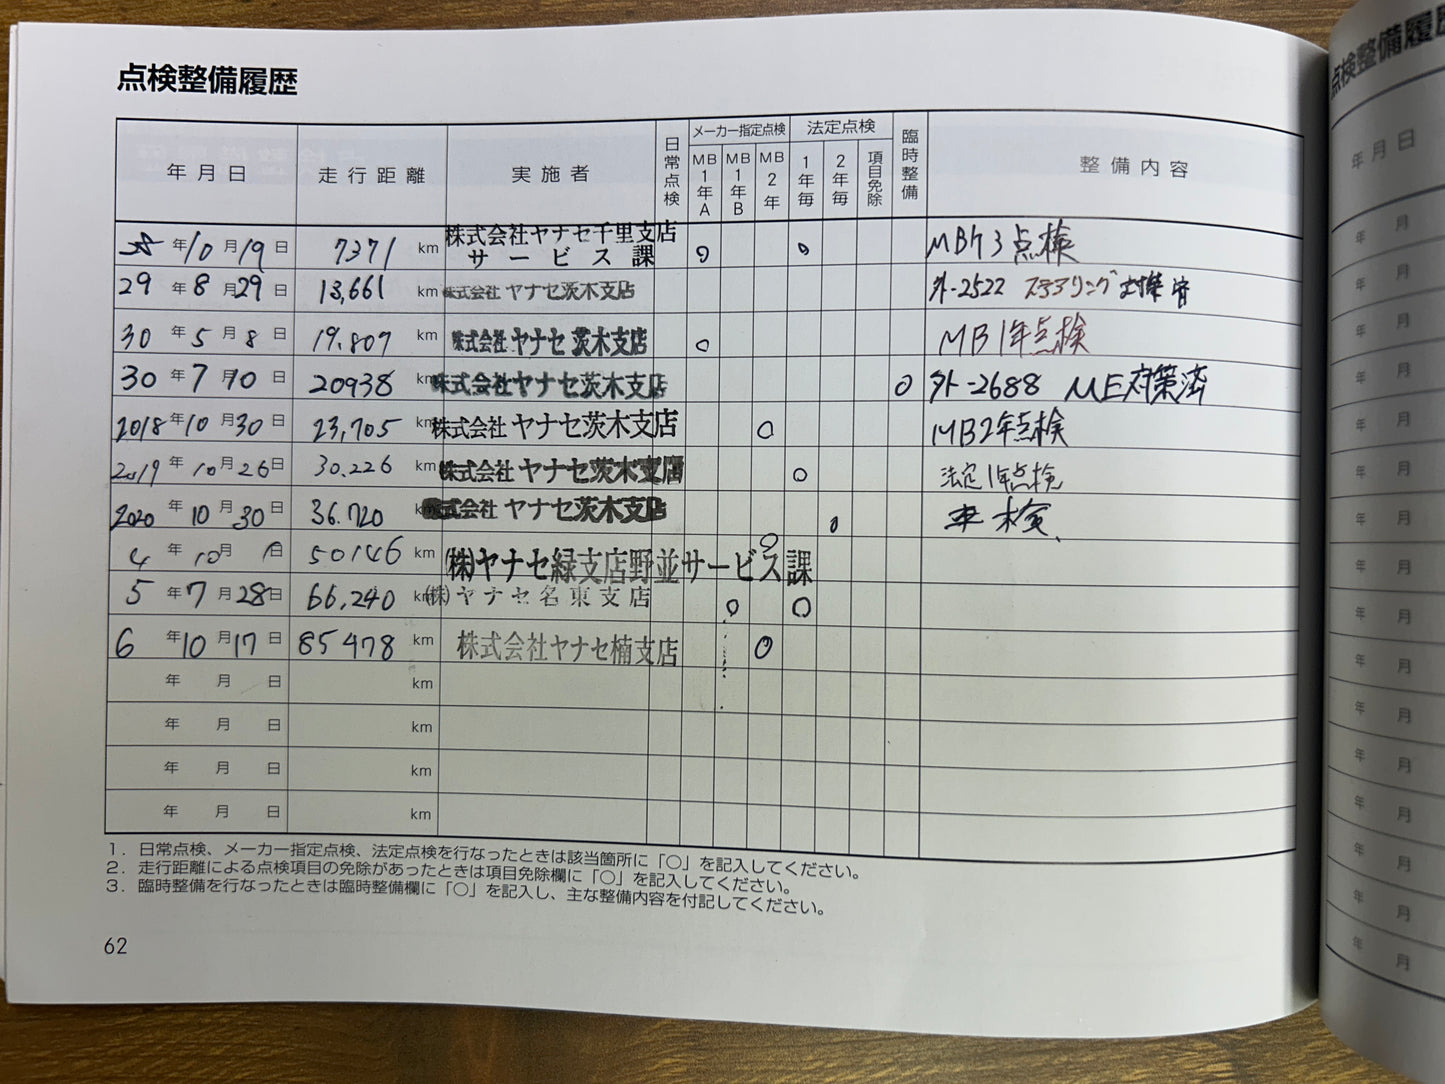 点検整備履歴
年月日 走行距離 実施者 日常点検 メーカー指定点検 MB1年A MB1年B MB2年 法定点検 1年毎 2年毎 項目免除 臨時整備 整備内容
28年10月19日 7371 km 株式会社ヤナセ千里支店 サービス課 ○ ○ 点検
29年8月29日 13,661 km 株式会社ヤナセ茨木支店 外-2522 ステアリング
30年5月8日 19.807 km 株式会社ヤナセ茨木支店 ○ MB1年点検
30年7月10日 20938 km 株式会社ヤナセ茨木支店 ○ 外-2688 ME対策済
2018年10月30日 23,705 km 株式会社ヤナセ茨木支店 ○ MB2年点検
2019年10月26日 30.226 km 株式会社ヤナセ茨木支店 ○ 法定1年点検
2020年10月30日 36.720 km 株式会社ヤナセ茨木支店 ○ 車検
4年10月1日 50146 km (株)ヤナセ緑支店野並サービス課 ○
5年7月28日 66,240 km (株)ヤナセ名東支店 ○ ○
6年10月17日 85478 km 株式会社ヤナセ楠支店 ○
年 月 日 km
年 月 日 km
年 月 日 km
年 月 日 km
1. 日常点検、メーカー指定点検、法定点検を行なったときは該当箇所に「○」を記入してください。
2. 走行距離による点検項目の免除があったときは項目免除欄に「○」を記入してください。
3. 臨時整備を行なったときは臨時整備欄に「○」を記入し、主な整備内容を付記してください。
62
点検整備履歴
年月日
年 月
年 月
年 月
年 月
年 月
年 月
年 月
年 月
年 月
年 月
年 月
年 月
年 月
年 月
年 月
年 月